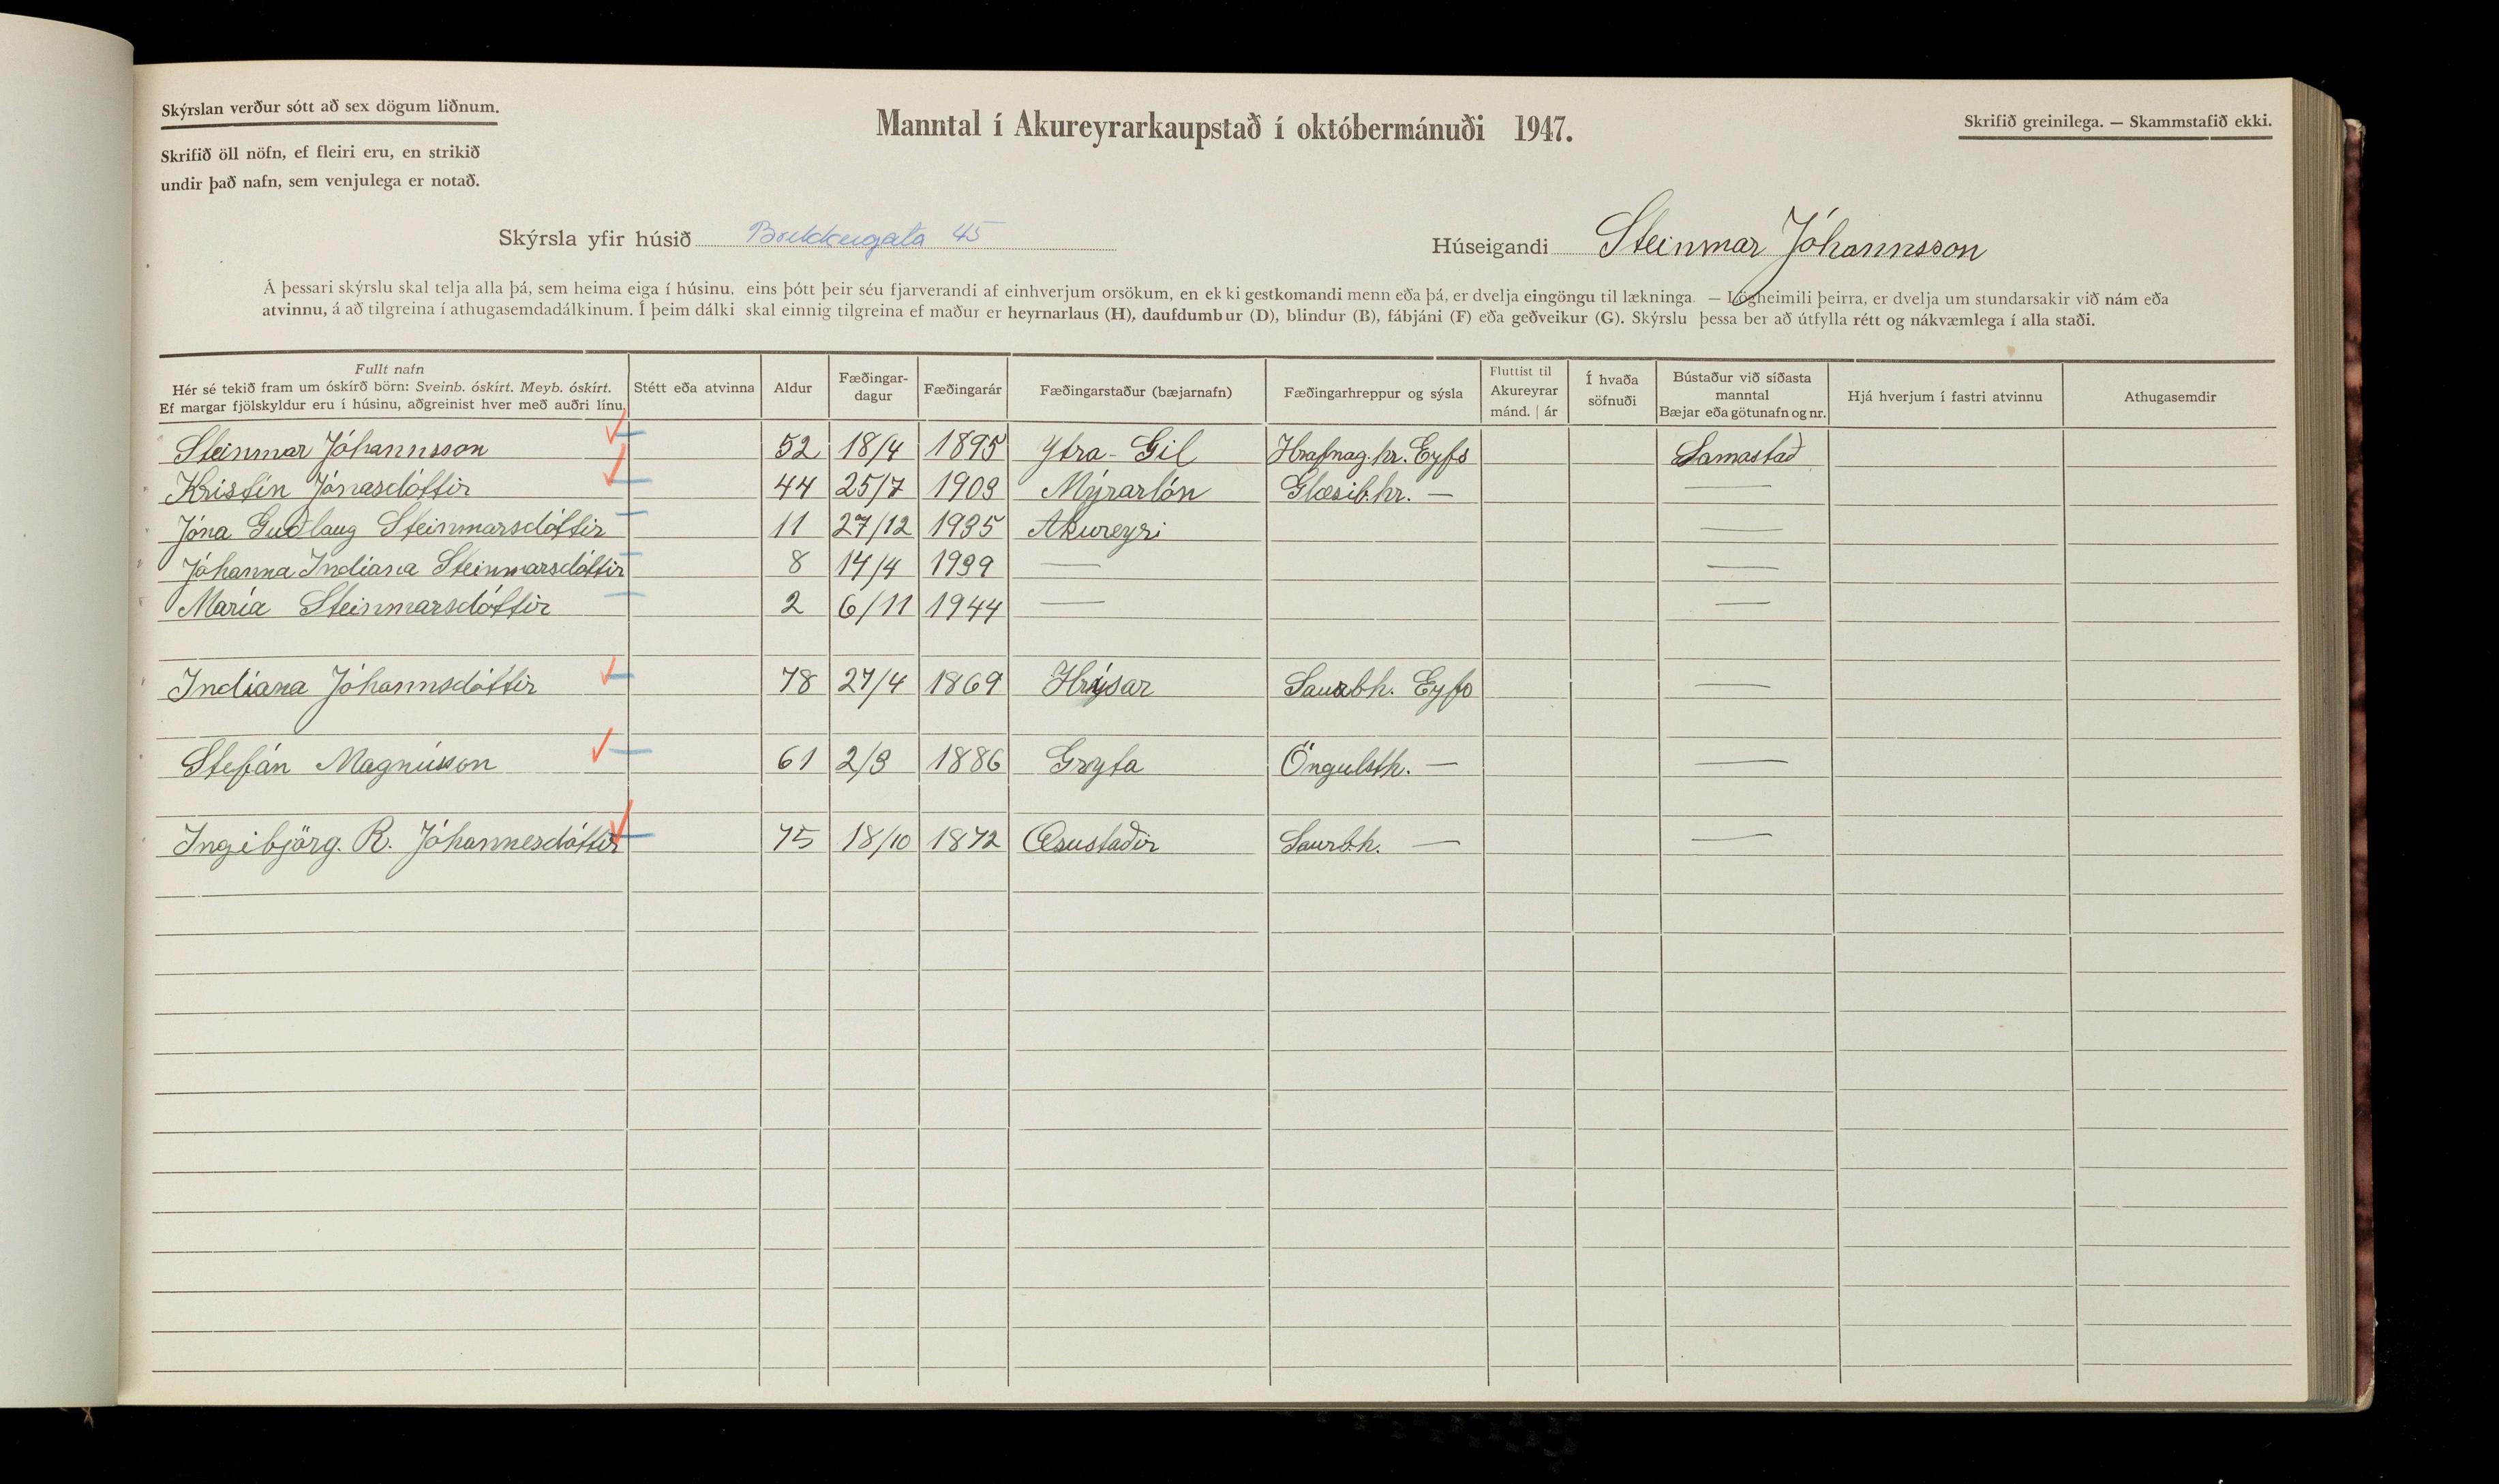 Skýrslan verður sótt að sex dögum liðnum.
Skrifið öll nöfn, ef fleiri eru, en strikið
undir það nafn, sem venjulega er notað.
Manntal í Akureyrarkaupstað í októbermánuði 1947.
Skrifið greinilega. — Skammstafið ekki.
Skýrsla yfir húsið Brekkugata 45
Húseigandi Steinmar Jóhannsson
Á þessari skýrslu skal telja alla þá, sem heima eiga í húsinu, eins þótt þeir séu fjarverandi af einhverjum orsökum, en ekki gestkomandi menn eða þá, er dvelja eingöngu til lækninga. — Lögheimili þeirra, er dvelja um stundarsakir við nám eða
atvinnu, á að tilgreina í athugasemdadálkinum. Í þeim dálki skal einnig tilgreina ef maður er heyrnarlaus (H), daufdumbur (D), blindur (B), fábjáni (F) eða geðveikur (G). Skýrslu þessa ber að útfylla rétt og nákvæmlega í alla staði.
Fullt nafn
Hér sé tekið fram um óskírð börn: Sveinb. óskírt. Meyb. óskírt.
Ef margar fjölskyldur eru í húsinu, aðgreinist hver með auðri línu.
Stétt eða atvinna
Aldur
Fæðingar-
dagur
Fæðingarár
Fæðingarstaður (bæjarnafn)
Fæðingarhreppur og sýsla
Fluttist til
Akureyrar
mánd. | ár
Í hvaða
söfnuði
Bústaður við síðasta
manntal
Bæjar eða götunafn og nr.
Hjá hverjum í fastri atvinnu
Athugasemdir
Steinmar Jóhannsson 52 18/4 1895 Ytra-Gil Hrafnag.hr. Eyfs Samastað
Kristín Jónasdóttir 44 25/7 1903 Mýrarlón Glæsib.hr. — —
Jóna Guðlaug Steinmarsdóttir 11 27/12 1935 Akureyri —
Jóhanna Indíana Steinmarsdóttir 8 14/4 1939 — —
María Steinmarsdóttir 2 6/11 1944 — —
Indíana Jóhannsdóttir 78 27/4 1869 Hrísar Saurbh. Eyfs —
Stefán Magnússon 61 2/3 1886 Gryta Öngulsth. — —
Ingibjörg. R. Jóhannesdóttir 75 18/10 1872 Æsustaðir Saurb.h. — —